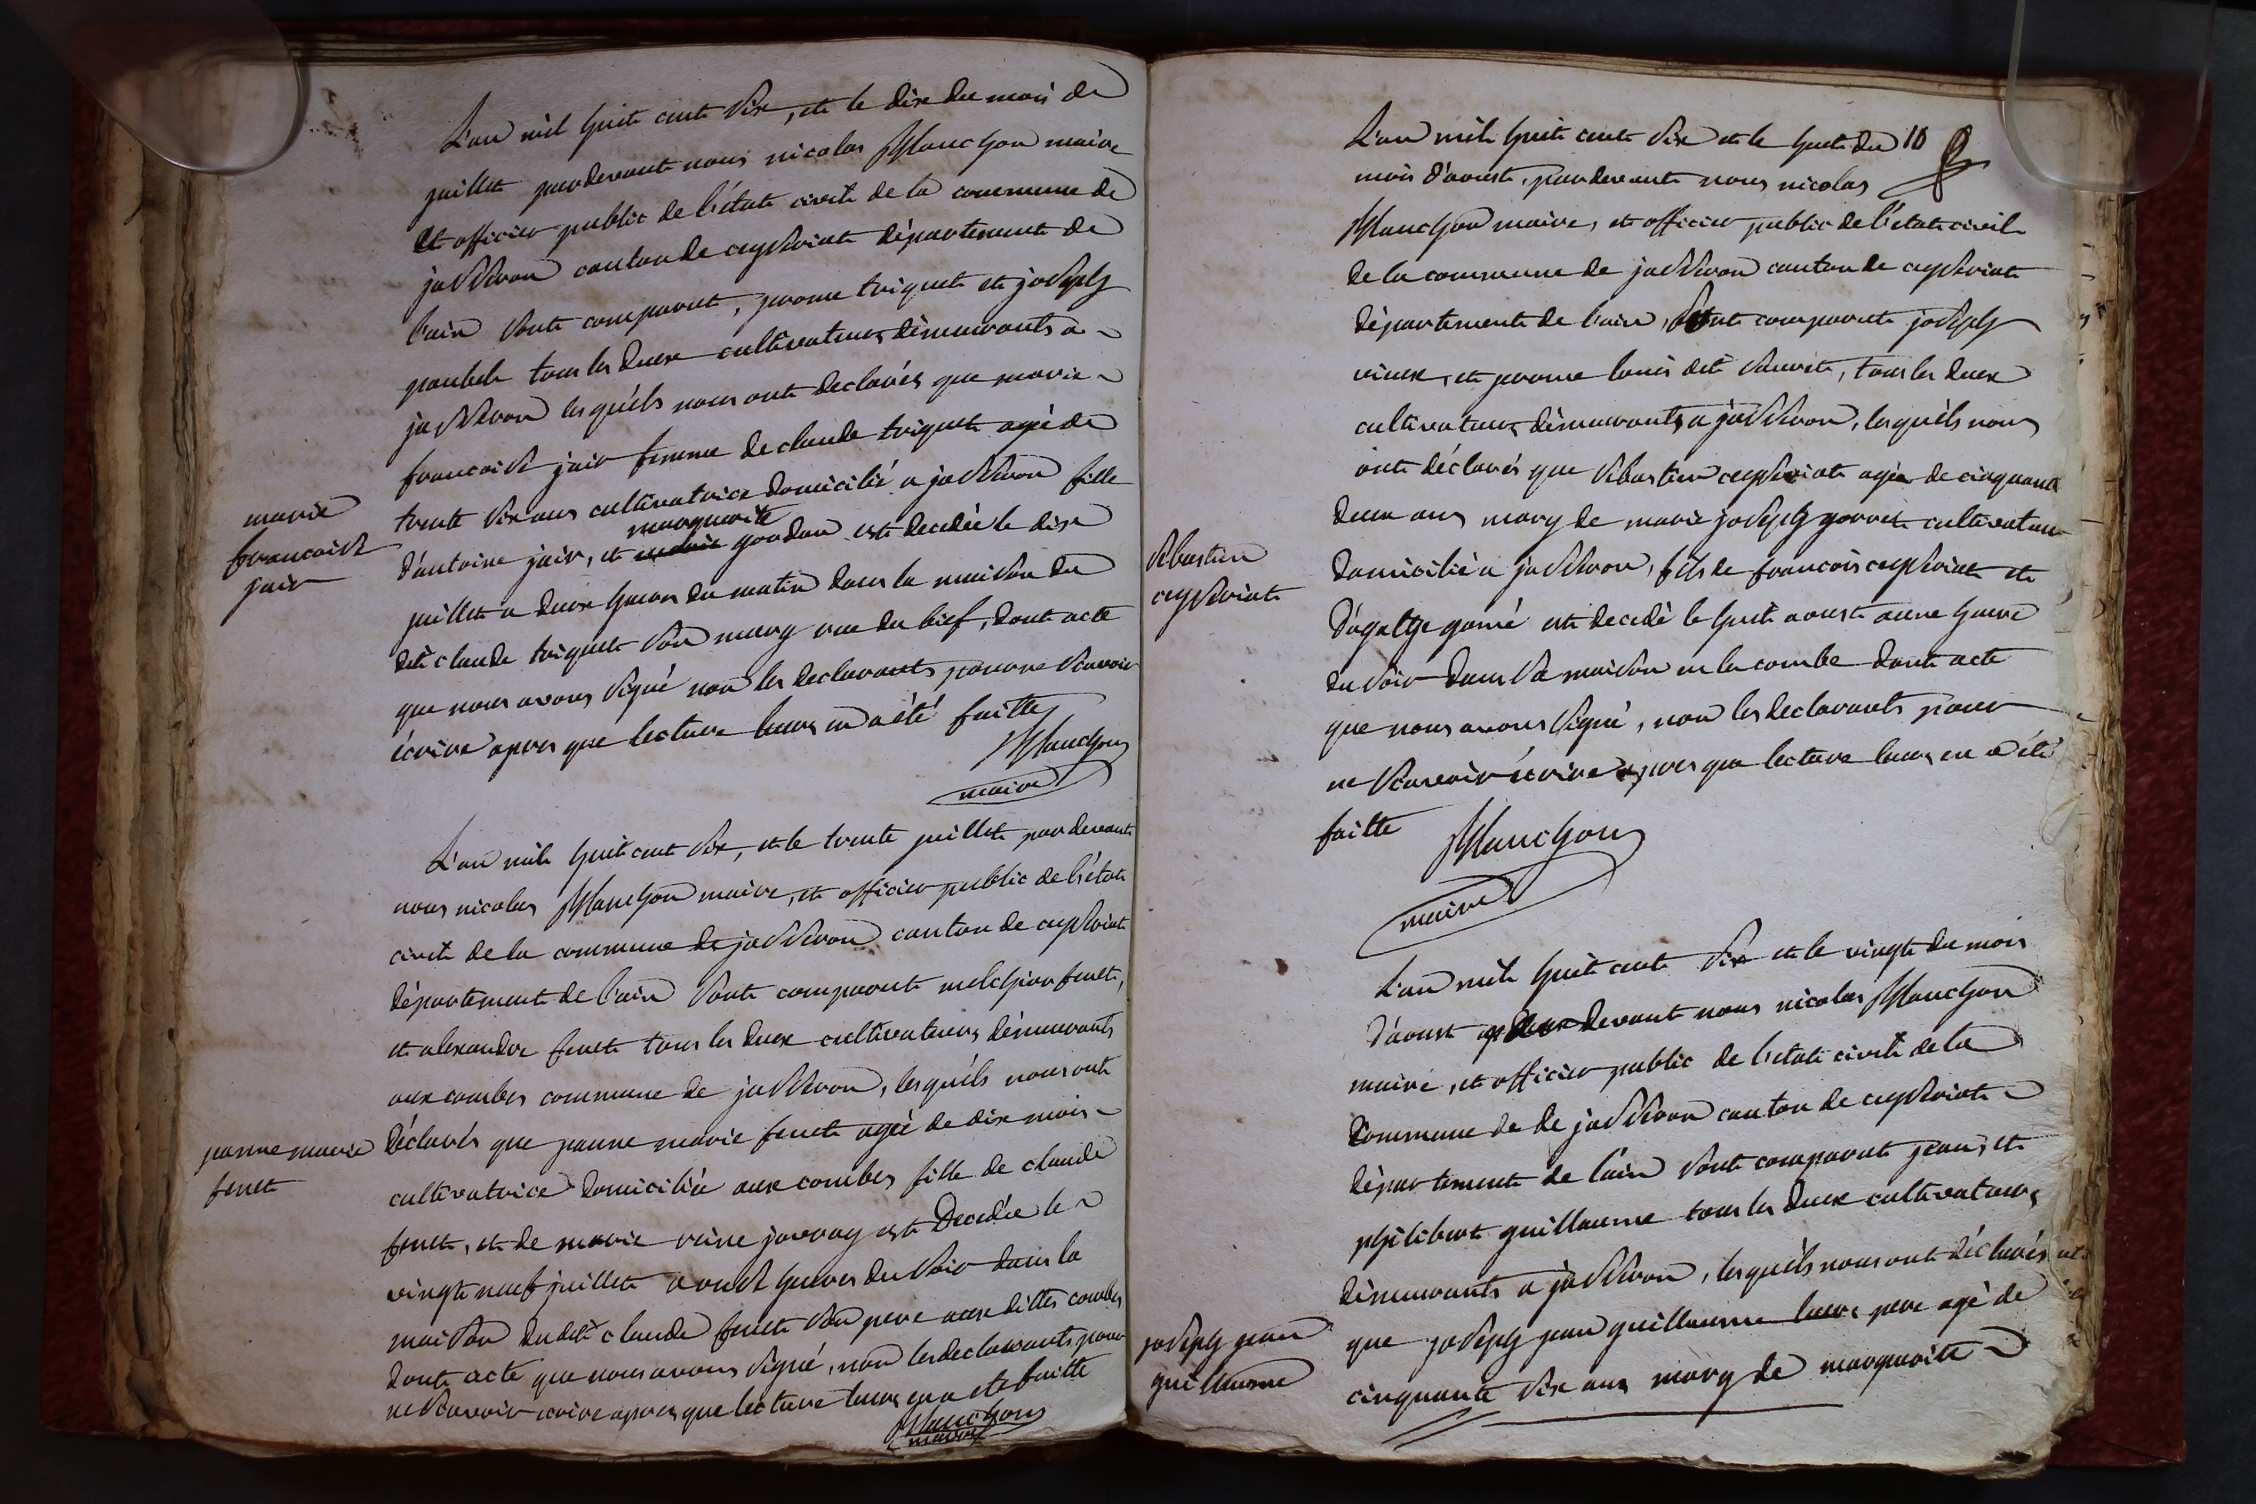 L'an mil huit cent six, et le dix du mois de
juillet pardevant nous nicolas Manchon maire
et officier public de l'état civil de la commune de
jasseron canton de ceyseriat département de
l'ain sont comparut, prome triquet et joseph
tous les deux cultivateurs démeurants a
jasseron lesquéls nous ont declarés que marie
francoise jair femme de claude triquet agé de
trente six ans cultivatrice domicilié a jasseron fille
marguerite
d'antoine jair, et goudon est decedée le dix
juillet a deux heures du matin dans la maison du
dit claude triquet son mary rue du bief, dont acte
que nous avons signé non les declarants pour ne scavoir
écrire apres que lecture leurs en a été faitte
Manchon
maire
marie
francoise
jair
L'an mil huit cent six, et le trente juillet pardevant
nous nicolas Manchon maire, et officier public de l'état
civil de la commune de jasseron canton de ceyseriat
département de l'ain sont comparut melchior feuet,
et alexandre feuet tous les deux cultivateurs démeurants
aux combes commune de jasseron, lesquéls nous ont
déclarés que jeanne marie feuet agée de dix mois
cultivatrice domiciliée aux combes fille de claude
feuet, et de marie reine jourray est Decedée le
vingt neuf juillet a onse heures du soir dans la
maison dudit claude feuet son pere aux dittes combes
dont acte que nous avons signé, non les declarants pour
ne scavoir ecrire apres que lecture leurs en a ete faitte
Manchon
maire
jeanne marie
feuet
10
L'an mil huit cent six et le huit du
mois d'aoust, pardevant nous nicolas
Manchon maire, et officier public de l'état civil
de la commune de jasseron canton de ceyseriat
département de l'ain, sont comparut joseph
vieux, et prome louis dit, tous les deux
cultivateurs démeurants a jasseron, lesquéls nous
ont déclarés que sébastien ceyseriat agée de cinquante
deux ans mary de marie joseph gorret cultivateur
domicilié a jasseron, fils de francois ceyseriat et
d'agathe est decedé le huit aoust a une heure
du soir dans sa maison en la combe dont acte
que nous avons signé, non les declarants pour
ne scavoir écrire apres que lecture leurs en a été
faitte
Manchon
maire
sébastien
ceyseriat
L'an mil huit cent six et le vingt du mois
d'aoust par devant nous nicolas Manchon
maire, et officier public de l'état civil de la
commune de de jasseron canton de ceyseriat
département de l'ain sont comparut jean, et
philibert guillaume tous les deux cultivateurs
démeurants a jasseron, lesquéls nous ont déclarés
que joseph jean guillaume leurs pere agé de
cinquante six ans mary de marguerite
joseph jean
guillaume